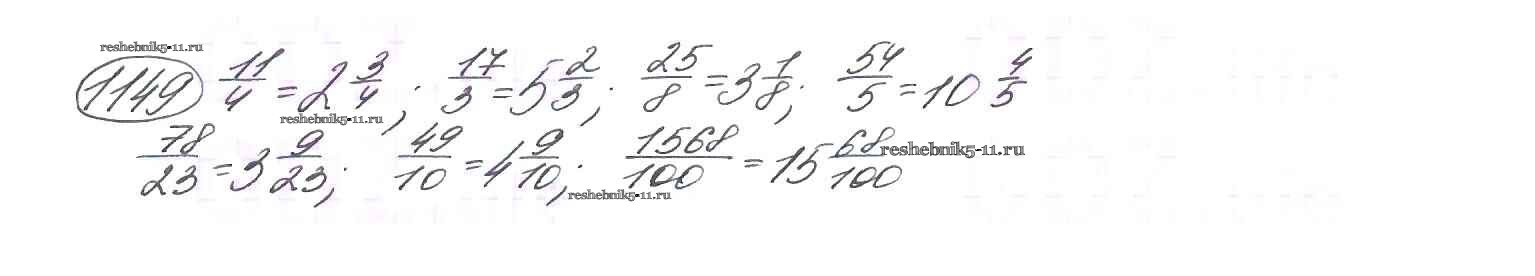 reshebnik5-11.ru
1149 11/4 = 2 3/4; 17/3 = 5 2/3; 25/8 = 3 1/8; 54/5 = 10 4/5
reshebnik5-11.ru
78/23 = 3 9/23; 49/10 = 4 9/10; 1568/100 = 15 68/100
reshebnik5-11.ru
reshebnik5-11.ru